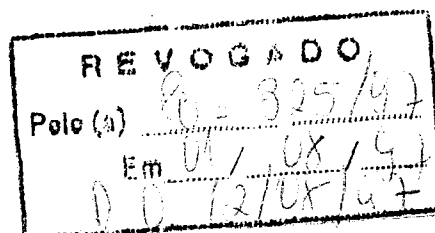 REVOGADO
Pelo (a) 925/97
Em 01/08/97
D.O. 12/08/97